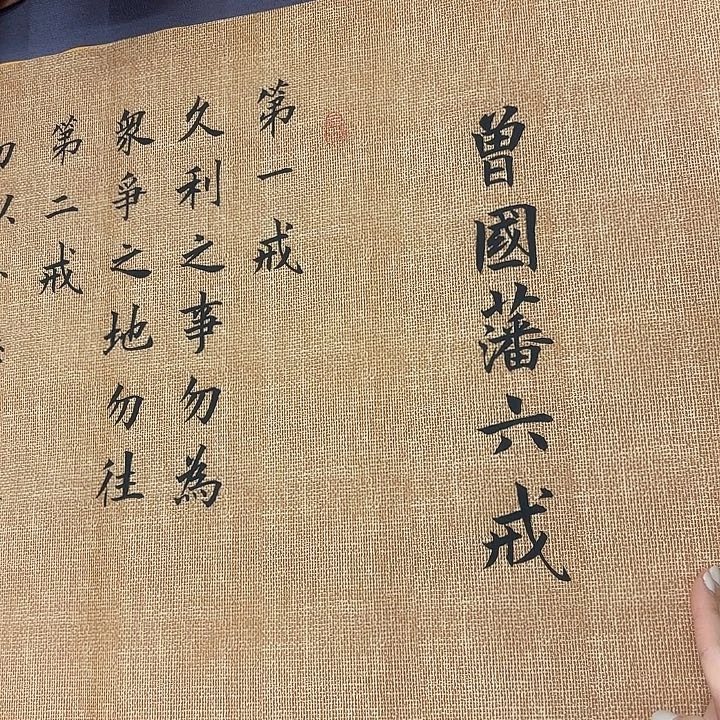 曾國藩六戒
第一戒
久利之事勿為
衆爭之地勿往
第二戒
勿以